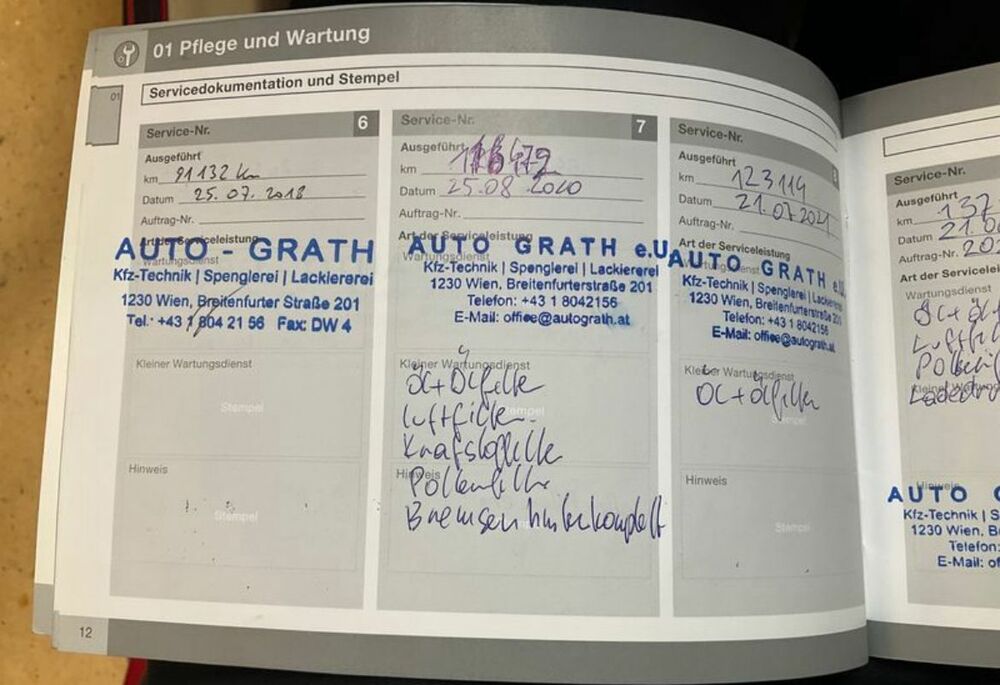 01 Pflege und Wartung
01
Servicedokumentation und Stempel
Service-Nr. 6
Ausgeführt
km 91132 km
Datum 25.07.2018
Auftrag-Nr.
Art der Serviceleistung
Wartungsdienst
AUTO - GRATH
Kfz-Technik | Spenglerei | Lackiererei
1230 Wien, Breitenfurter Straße 201
Tel.: +43 1 804 21 56 Fax: DW 4
Kleiner Wartungsdienst
Stempel
Hinweis
Stempel
Service-Nr. 7
Ausgeführt
km
Datum 25.08.2020
Auftrag-Nr.
Art der Serviceleistung
Wartungsdienst
AUTO GRATH e.U.
Kfz-Technik | Spenglerei | Lackiererei
1230 Wien, Breitenfurterstraße 201
Telefon: +43 1 8042156
E-Mail: office@autograth.at
Kleiner Wartungsdienst
Öl + Ölfilter
Luftfilter
Stempel
Kraftstoffilter
Hinweis
Pollenfilter
Bremsen hinten komplett
Service-Nr.
Ausgeführt
km 123119
Datum 21.07.2021
Auftrag-Nr.
Art der Serviceleistung
Wartungsdienst
AUTO GRATH e.U.
Kfz-Technik | Spenglerei | Lackiererei
1230 Wien, Breitenfurterstraße 201
Telefon: +43 1 8042156
E-Mail: office@autograth.at
Kleiner Wartungsdienst
Öl + Ölfilter
Stempel
Hinweis
Stempel
12
Service-Nr.
Ausgeführt
km 137
Datum 21.0
Auftrag-Nr. 20
Art der Servicelei
Wartungsdienst
Öl + Ö
Luftfi
Pollenf
Kleiner Wartungs
Hinweis
AUTO G
Kfz-Technik | S
1230 Wien, B
Telefon:
E-Mail: of